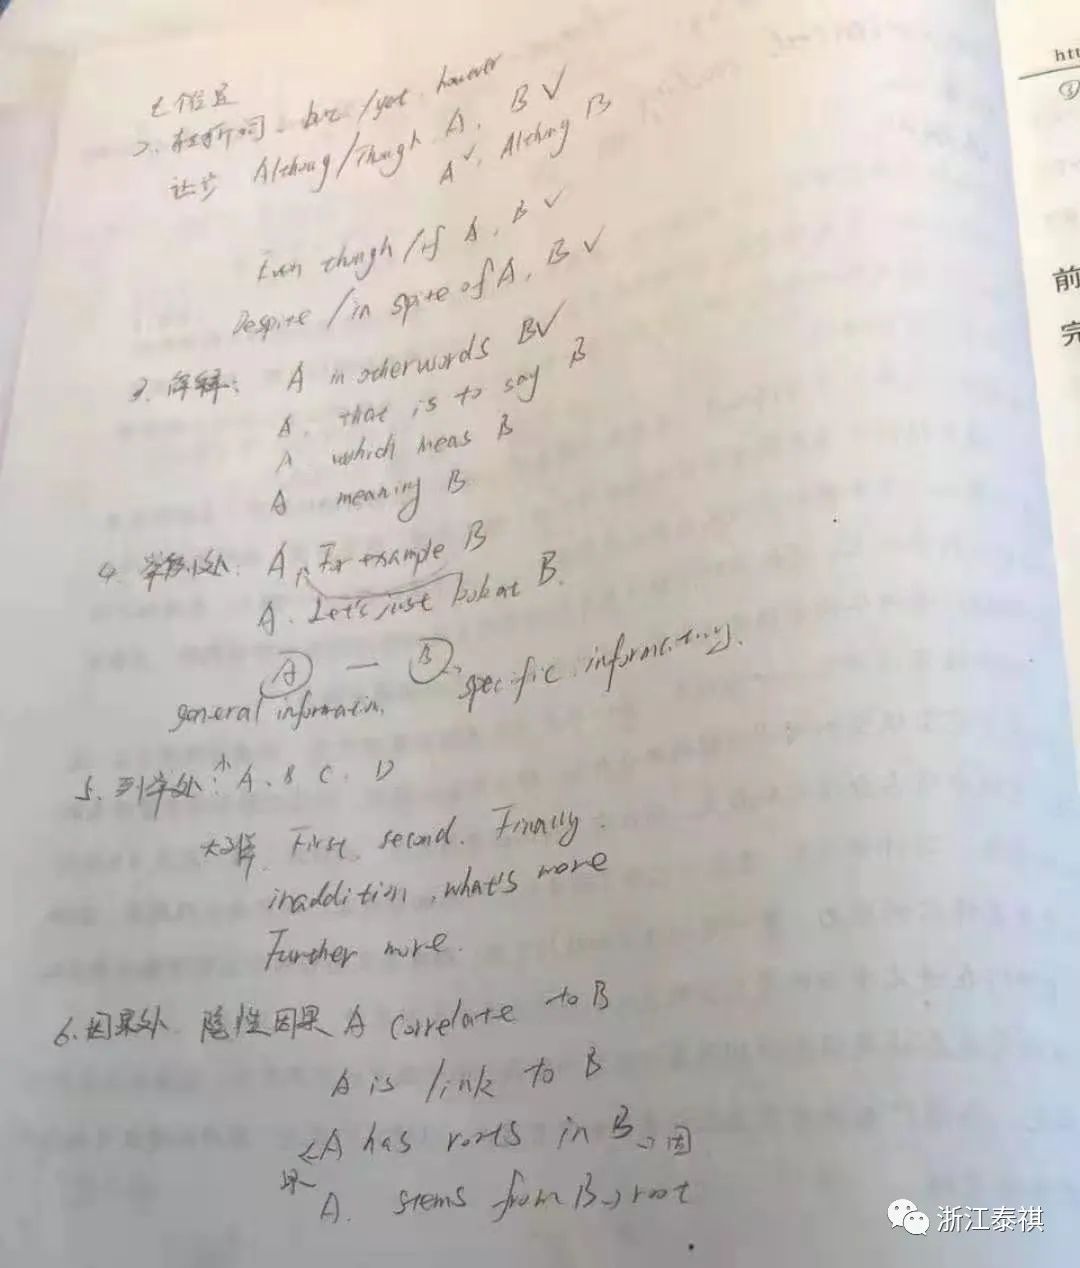 七个位置
2. 转折词. but/yet however
让步 Althoug/Though A, B ✓
A ✓, Althoug B
Even though/if A, B ✓
Despite/in spite of A, B ✓
3. 解释: A in otherwords B ✓
A, that is to say B
A which meas B
A meaning B
4. 举例处: A, For example B
A. Let's just look at B.
A — B
general information, specific information
5. 列举处: 小 A、B、C、D
First, second. Finally.
inaddition, what's more
Further more.
6. 因果处 隐性因果 A correlate to B
A is link to B
A has roots in B → 因
果
A. stems from B → root
htt
③
前
完
浙江泰祺